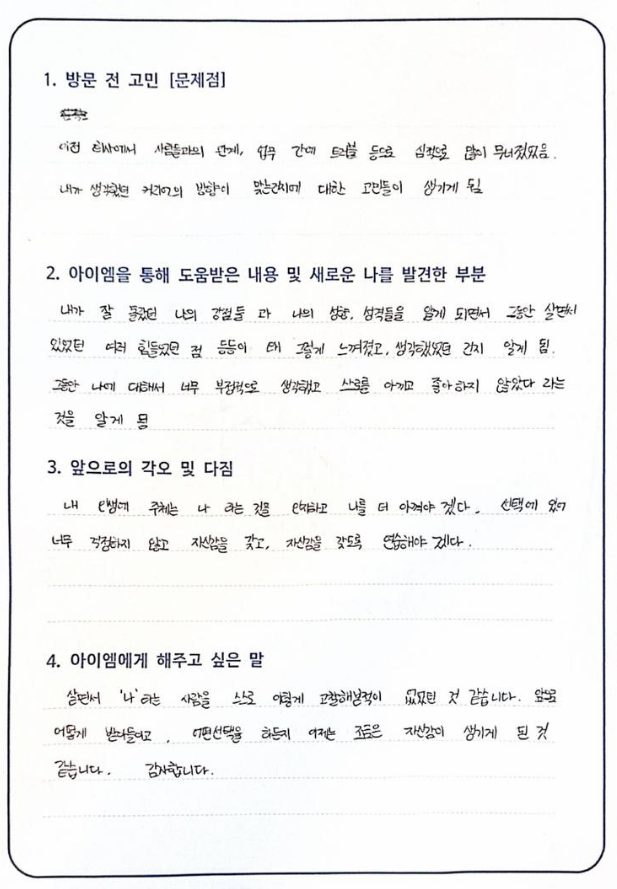 1. 방문 전 고민 [문제점]
이전 회사에서 사람들과의 관계, 업무 간에 트러블 등으로 심적으로 많이 무너져있음.
내가 생각했던 커리어의 방향이 맞는건지에 대한 고민들이 생기게 됨
2. 아이엠을 통해 도움받은 내용 및 새로운 나를 발견한 부분
내가 잘 몰랐던 나의 강점들 과 나의 성향, 성격들을 알게 되면서 그동안 살면서
있었던 여러 힘들었던 점 등등이 왜 그렇게 느껴졌고, 생각했었던 건지 알게 됨.
그동안 나에 대해서 너무 부정적으로 생각했고 스스로를 아끼고 좋아하지 않았다 라는
것을 알게 됨
3. 앞으로의 각오 및 다짐
내 인생에 주체는 나 라는 것을 인지하고 나를 더 아껴야 겠다. 선택에 있어
너무 걱정하지 않고 자신감을 갖고, 자신감을 갖도록 연습해야 겠다.
4. 아이엠에게 해주고 싶은 말
살면서 '나'라는 사람을 스스로 이렇게 고찰해본적이 없었던 것 같습니다. 앞으로
어떻게 받아들이고, 어떤선택을 하든지 이제는 조금은 자신감이 생기게 된 것
같습니다. 감사합니다.